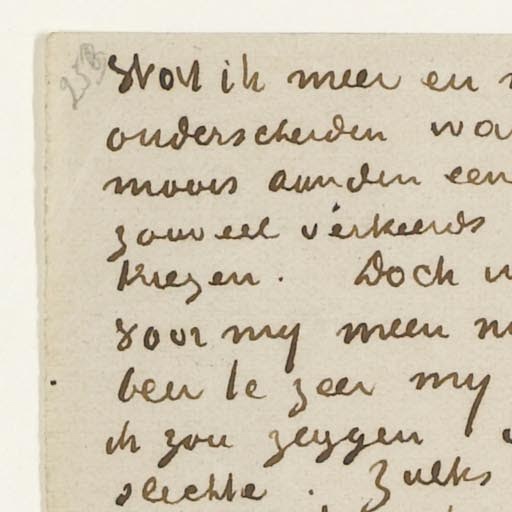 253
Wat ik meer en
onderscheiden
moois aan den een
zooveel verkeerds
kregen. Doch
voor my meer
ben te zeer my
ik zou zeggen
slechte. Zulks